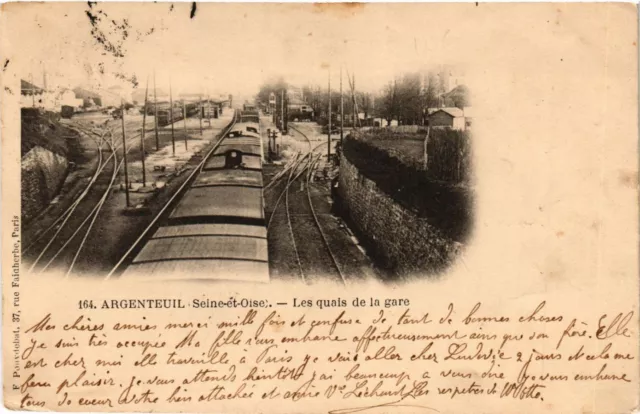 164. ARGENTEUIL (Seine-et-Oise). — Les quais de la gare
F. Faubherbe, Paris
Mes chères amies merci mille fois et confuse de tant de bonnes choses
Je suis très occupée Ma fille vous embrasse affectueusement ainsi que son frère. Elle
est chez moi elle travaille à Paris je vais aller chez 2 jours et cela me
fera plaisir. je vous attends bientôt j'ai beaucoup à vous dire je vous embrasse
tous de coeur votre bien attachée et amie Vve Lechard Les respects de